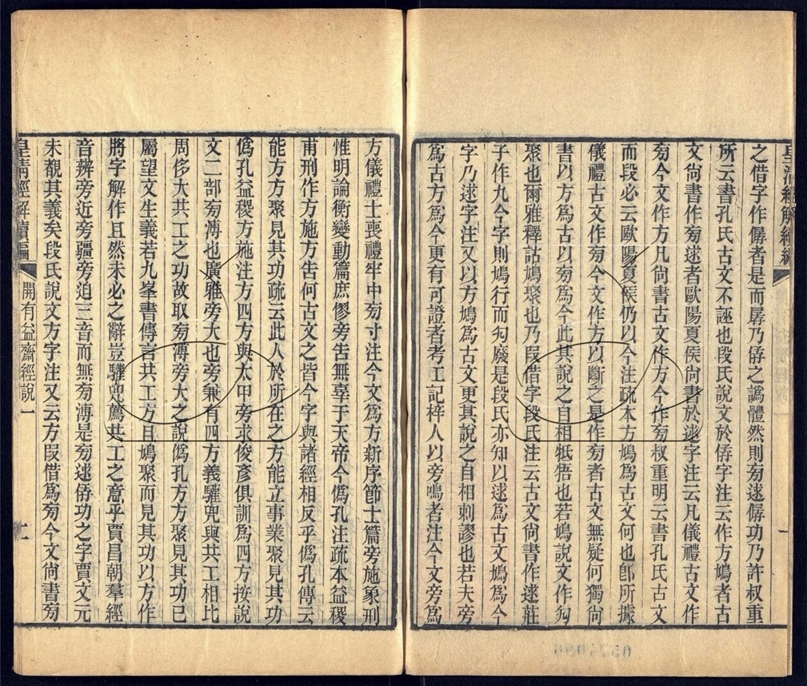 之借字作孱者是而孱乃僝之譌體然則旁逑孱功乃許叔重
所云書孔氏古文不誣也段氏說文於僝字注云作方鳩者古
文尙書作旁逑者歐陽夏侯尙書於逑字注云凡儀禮古文作
旁今文作方凡尙書古文作方今作旁叔重明云書孔氏古文
而段必云歐陽夏侯仍以今注疏本方鳩爲古文何也卽所據
儀禮古文作旁今文作方以斷之是作旁者古文無疑何獨尙
書以方爲古以旁爲今此其說之自相牴牾也若鳩說文作勼
聚也爾雅釋詁鳩聚也乃叚借字段氏注云古文尙書作逑莊
子作九今字則鳩行而勼廢是段氏亦知以逑爲古文鳩爲今
字乃逑字注又以方鳩爲古文更其說之自相刺謬也若夫旁
爲古方爲今更有可證者考工記梓人以旁鳴者注今文旁爲
方儀禮士喪禮牢中旁寸注今文爲方新序節士篇旁施象刑
惟明論衡變動篇庶僇旁告無辜于天帝今僞孔注疏本益稷
甫刑作方施方告何古文之皆今字與諸經相反乎僞孔傳云
能方方聚見其功疏云此人於所在之方能立事業聚見其功
僞孔益稷方施注方四方與太甲旁求俊彥俱訓爲四方按說
文二部旁溥也廣雅旁大也旁兼有四方義驩兜與共工相比
周侈大共工之功故取旁溥旁大之說僞孔方方聚見其功已
屬望文生義若九峯書傳言共工方且鳩聚而見其功以方作
將字解作且然未必之辭豈驩兜薦共工之意乎賈昌朝羣經
音辨旁近旁疆旁迫三音而無旁溥是旁逑僝功之字賈文元
未覩其義矣段氏說文方字注又云方叚借爲旁今文尙書旁
皇淸經解續編
開有益齋經說一
一